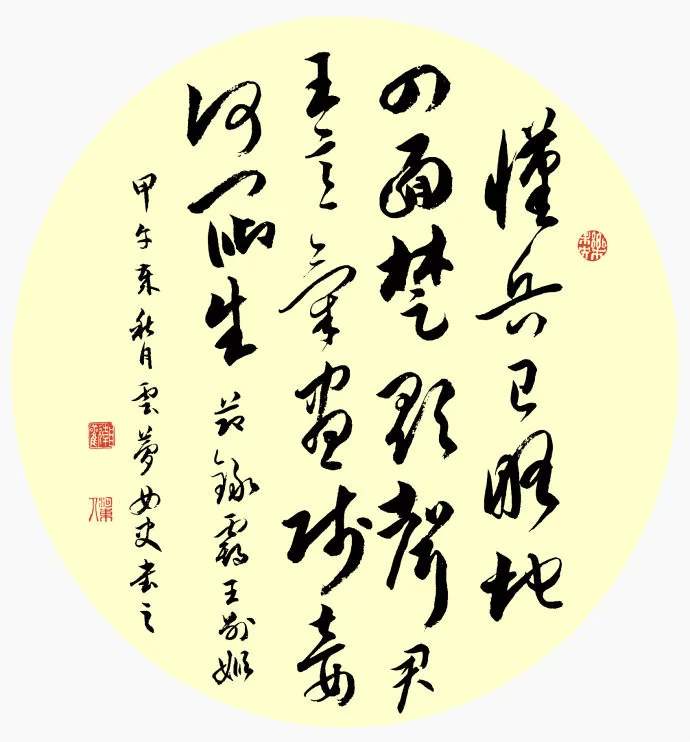 漢兵已略地
四面楚歌聲君
王意氣盡賤妾
何聊生 节録霸王别姬
甲午年秋月雲夢女史書之